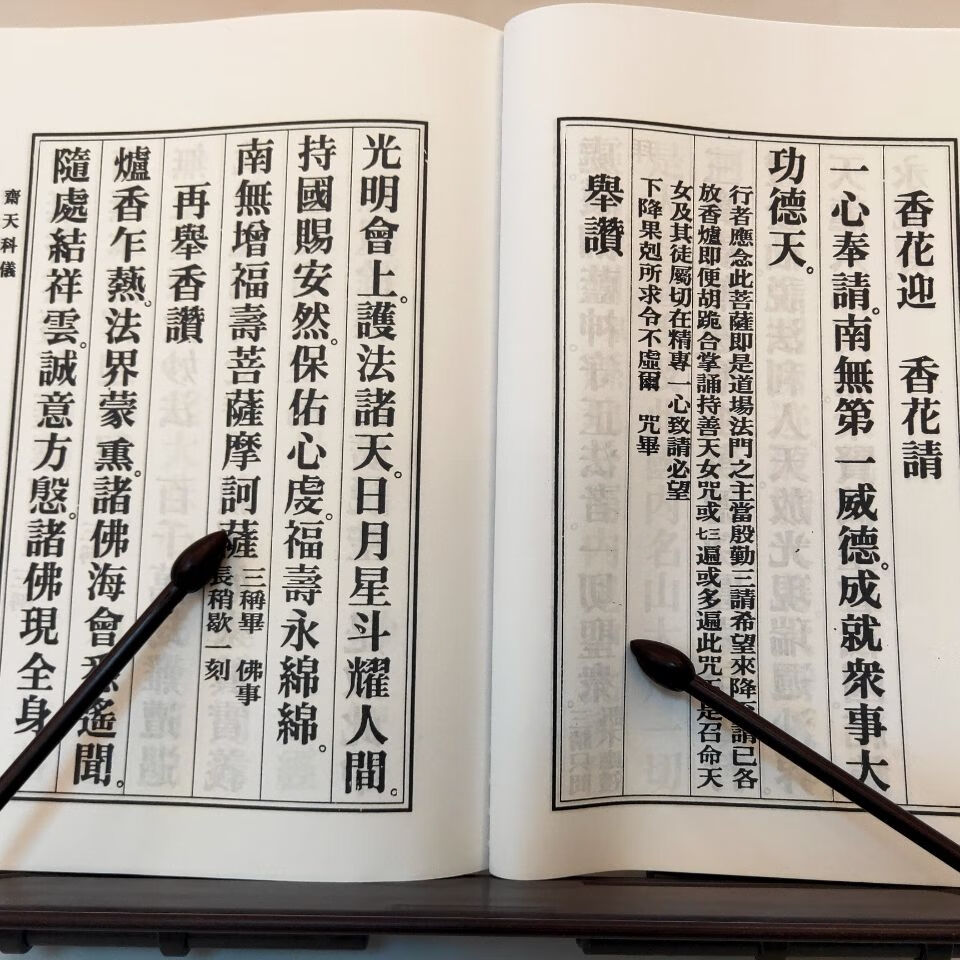 香花迎　香花請
一心奉請。南無第一威德。成就衆事大
功德天。
行者應念此菩薩即是道場法門之主當殷勤三請希望來降 請已各
放香爐即便胡跪合掌誦持善天女咒或七三遍或多遍此咒 是召命天
女及其徒屬切在精專一心致請必望
下降果剋所求令不虛爾　咒畢
舉讚
光明會上。護法諸天。日月星斗耀人間。
持國賜安然。保佑心虔。福壽永綿綿。
南無增福壽菩薩摩訶薩 三稱畢　佛事
長稍歇一刻
再舉香讚
爐香乍爇。法界蒙熏。諸佛海會 遙聞。
隨處結祥雲。誠意方慇。諸佛現全身
齋天科儀